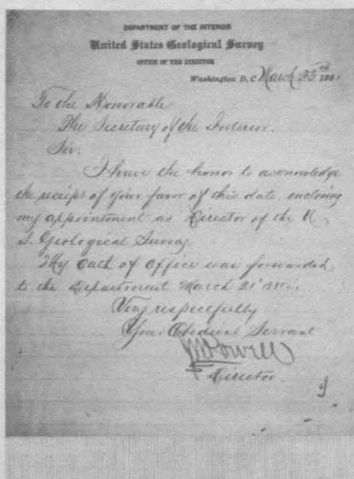 DEPARTMENT OF THE INTERIOR
United States Geological Survey
OFFICE OF THE DIRECTOR
Washington D.C. March 23rd 188
To the Honorable
The Secretary of the Interior.
Sir:
I have the honor to acknowledge
the receipt of your favor of this date, enclosing
my appointment as Director of the U.
S. Geological Survey.
My Oath of Office was forwarded
to the Department March 21st
Very respectfully
Your Obedient Servant
JW Powell
Director